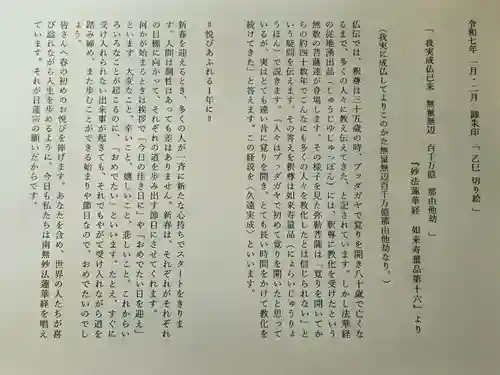 令和七年 一月・二月 御朱印 「 乙巳 切り絵 」
「 我実成仏已来 無量無辺 百千万億 那由他劫 」
『妙法蓮華経 如来寿量品第十六』より
（我実に成仏してよりこのかた無量無辺百千万億那由他劫なり。）
仏伝では、釈尊は三十五歳の時、ブッダガヤで覚りを開き八十歳で亡くな
るまで、多くの人々に教え伝えてきた、と記されています。しかし法華経
の従地湧出品（じゅうじゆじゅっぽん）には、釈尊に教化を受けたという
無数の菩薩達が登場します。その様子を見た弥勒菩薩は「覚りを開いてか
らの約四十数年でこんなにも多くの人々を教化したとは信じられない」と
いう疑問を伝えます。その答えを釈尊は如来寿量品（にょらいじゅりょ
うほん）で説きます。「人々はブッダガヤで初めて覚りを開いたと思って
いるが、実はとても遠い昔に覚りを開き、とても長い時間をかけて教化を
続けてきた」と答えます。この経説を（久遠実成）といいます。
‖悦びあふれる1年に‖
新春を迎えるとき、多くの人が一斉に新たな心持ちでスタートをきりま
す。人間は個性はあっても差はありません。新春は、それぞれがそれぞれ
の目標に向かって、それぞれの道を歩み出す節目にさせてくれます。
何かが始まるときは挨拶で「今日の佳き日に」や「おめでたい日を迎え」
といいます。大変なこと、辛いこと、嬉しいこと、悲しいこと、これからい
ろいろなことが起こるのに、「おめでたい」といいます。たとえ、すぐに
受け入れられない出来事が起きても、それでもやがて受け入れながら道を
踏み締め、また歩むことができる始まりや節目なので、おめでたいのでし
ょう。
皆さんへ春の初めのお悦びを捧げます。あなたを含め、世界の人たちが喜
び溢れながら人生を歩めるように、今日も私たちは南無妙法蓮華経を唱え
ています。それが日蓮宗の願いだからです。